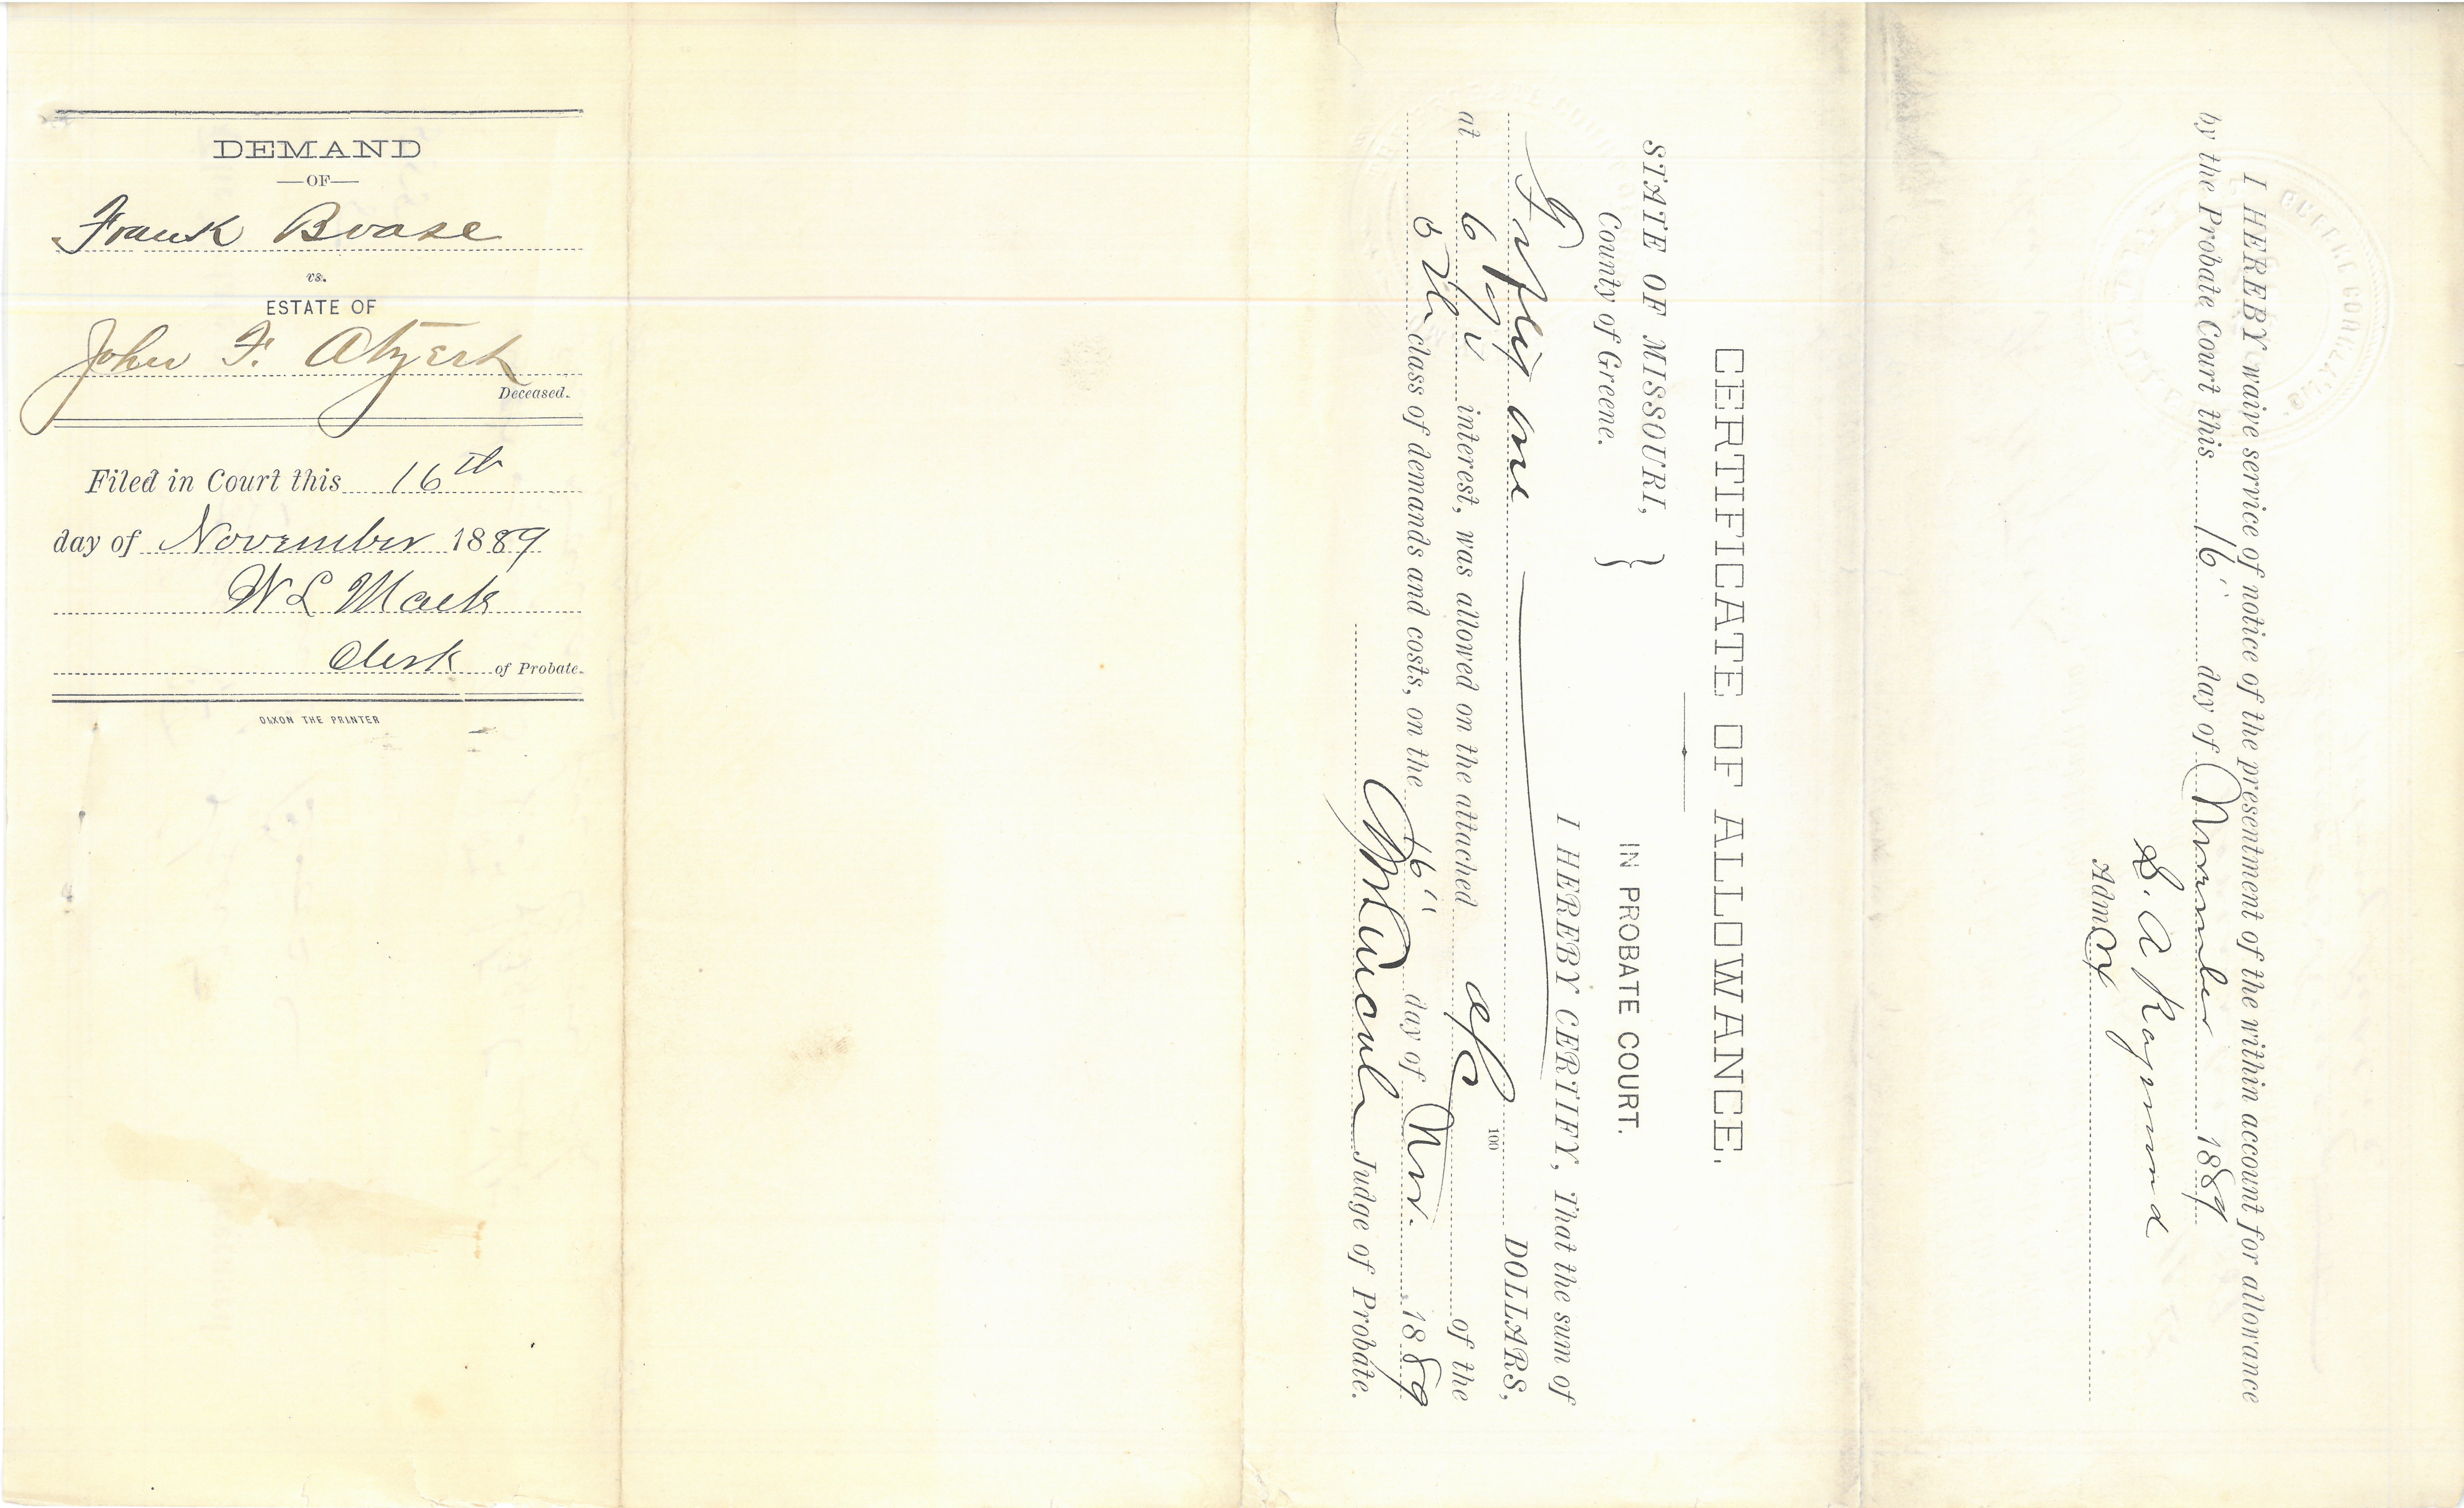 DEMAND
—OF—
Frank Boase
vs.
ESTATE OF
John F. Atzert
Deceased.
Filed in Court this 16th
day of November 1889
W L Mack
Clerk of Probate.
DIXON THE PRINTER
CERTIFICATE OF ALLOWANCE.
STATE OF MISSOURI,
County of Greene. }
IN PROBATE COURT.
I HEREBY CERTIFY, That the sum of
Fifty one 100 DOLLARS,
at 6 % interest, was allowed on the attached a/c of the
5th class of demands and costs, on the 16" day of Nov. 1889
Judge of Probate.
I HEREBY waive service of notice of the presentment of the within account for allowance
by the Probate Court this 16' day of November 1889
S. A Raymond
Admx